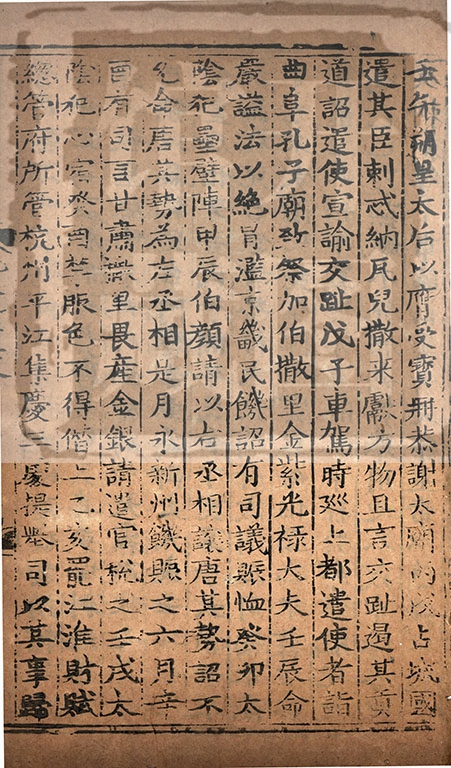 壬午朔皇太后以膺受寶冊恭謝太廟丙戌占城國
遣其臣剌忒納瓦兒撒来獻方物且言交趾遏其貢
道詔遣使宣諭交趾戊子車駕時巡上都遣使者詣
曲阜孔子廟致祭加伯撒里金紫光祿大夫壬辰命
嚴謚法以絶冐濫京畿民饑詔有司議賑恤癸卯太
陰犯壘壁陣甲辰伯顔請以右丞相讓唐其勢詔不
允命唐其勢為左丞相是月永新州饑賑之六月辛
酉有司言甘肅撒里畏産金銀請遣官稅之壬戌太
陰犯心宿癸酉禁服色不得僭上乙亥罷江淮財賦
總管府所管杭州平江集慶三處提舉司以其事歸